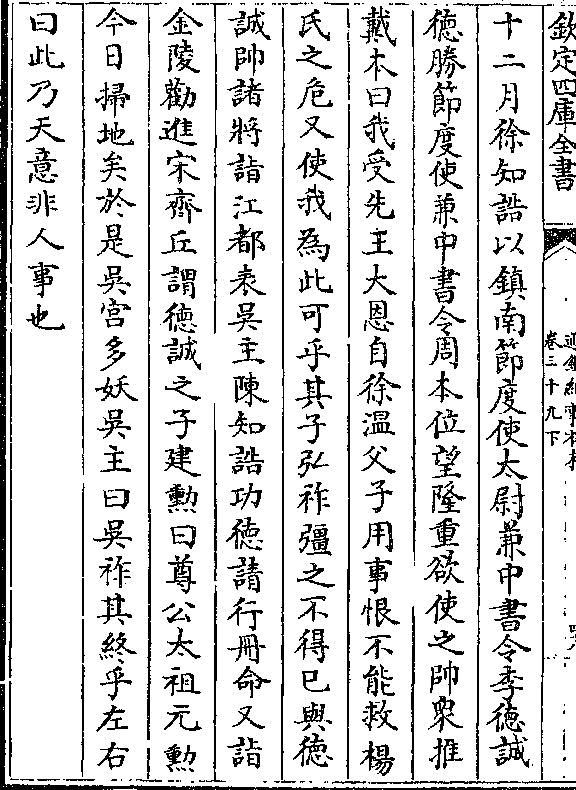 欽定四庫全書
卷三十九下
十二月徐知誥以鎮南節度使太尉兼中書令李德誠
德勝節度使兼中書令周本位望隆重欲使之帥衆推
戴本曰我受先王大恩自徐溫父子用事恨不能救楊
氏之危又使我為此可乎其子弘祚彊之不得已與德
誠帥諸將詣江都表吳主陳知誥功德請行冊命又詣
金陵勸進宋齊丘謂德誠之子建勲曰尊公太祖元勲
今日掃地矣於是吳宮多妖吳主曰吳祚其終乎左右
曰此乃天意非人事也